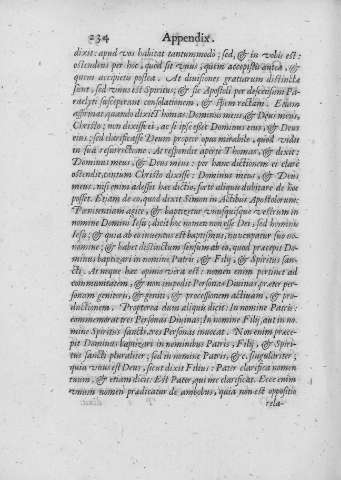 234 Appendix.
dixit: apud vos habitat tantummodò; sed, & in vobis est:
ostendens per hoc, quòd sit unus, quem accepistis antea, &
quem accipietis postea. At divisiones gratiarum distinctæ
sunt, sed unus est Spiritus; & sic Apostoli per descensum Pa-
racleti susceperunt consolationem, & spem rectam. Etiam
affirmat, quando dixit Thomas: Dominus meus, & Deus meus,
Christo; non dixisse ei, ac si ipse esset Dominus eius, & Deus
eius, sed clarificasse Deum propter opus mirabile, quod vidit
in sua resurrectione. At respondit aperte Thomas, & dixit:
Dominus meus, & Deus meus: per hanc dictionem ei clarè
ostendit, tantum Christo dixisse: Dominus meus, & Deus
meus. nisi enim adesset hæc dictio, fortè aliquis dubitare de hoc
posset. Etiam de eo, quod dixit Simon in Actibus Apostolorum:
Pœnitentiam agite, & baptizetur unusquisque vestrum in
nomine Domini Iesu; dixit hoc nomen non esse Dei, sed hominis
Iesu; & quia ab eo inventus est baptismus, nuncupetur suo no-
nomine; & habet distinctum sensum ab eo, quod præcepit Do-
minus baptizari in nomine Patris, & Filij, & Spiritus san-
cti. Atneque hæc opinio vera est: nomen enim pertinet ad
communitatem, & non impedit Personas Divinas, præter per-
sonam genitoris, & geniti, & processionem activam, & pro-
ductionem. Propterea dum aliquis dicit: In nomine Patris:
commemorat tres Personas Divinas; In nomine Filij, aut in no-
mine Spiritus sancti, tres Personas invocat. Non enim præce-
pit Dominus baptizari in nominibus Patris, Filij, & Spiri-
tus sancti pluraliter; sed in nomine Patris, &c. singulariter;
quia unus est Deus, sicut dixit Filius: Pater clarifica nomen
tuum, & etiam dicit: Est Pater, qui me clarificat. Ecce enim
unum nomen prædicatur de ambobus, quia non est oppositio
rela-